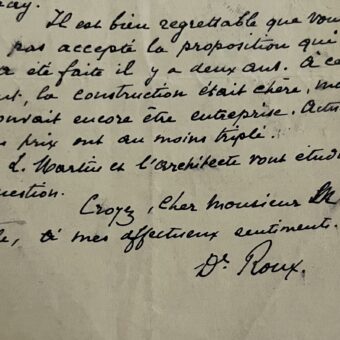 ay.
Il est bien regrettable que vou
pas accepté la proposition qui
a été faite il y a deux ans. A ce
nt, la construction était chère, ma
ouvait encore être entreprise. Actu
s prix ont au moins triplé.
L. Martin et l'architecte vont étudi
uestion.
Croyez, cher Monsieur
le, à mes affectueux sentiments.
Dr Roux.